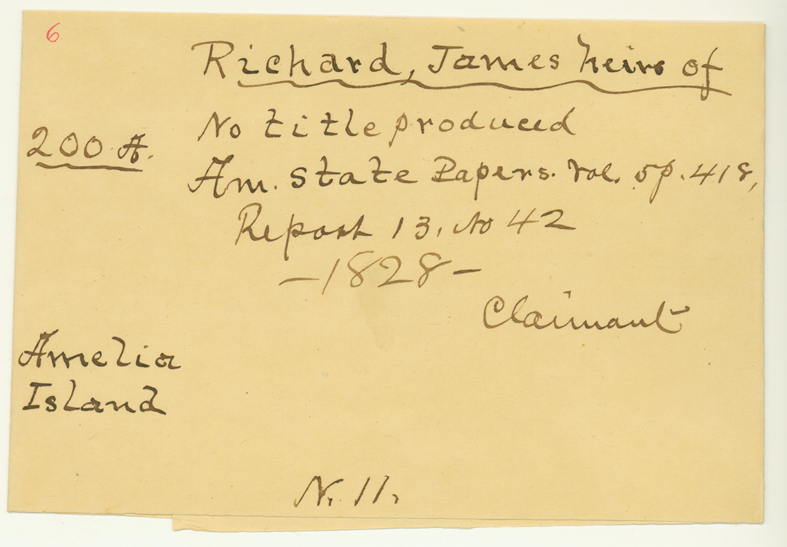 6
Richard, James heirs of
200 A.
No title produced
Am. State Papers. Vol. 5 p. 418,
Report 13, No 42
-1828-
Claimant
Amelia
Island
N. 11.